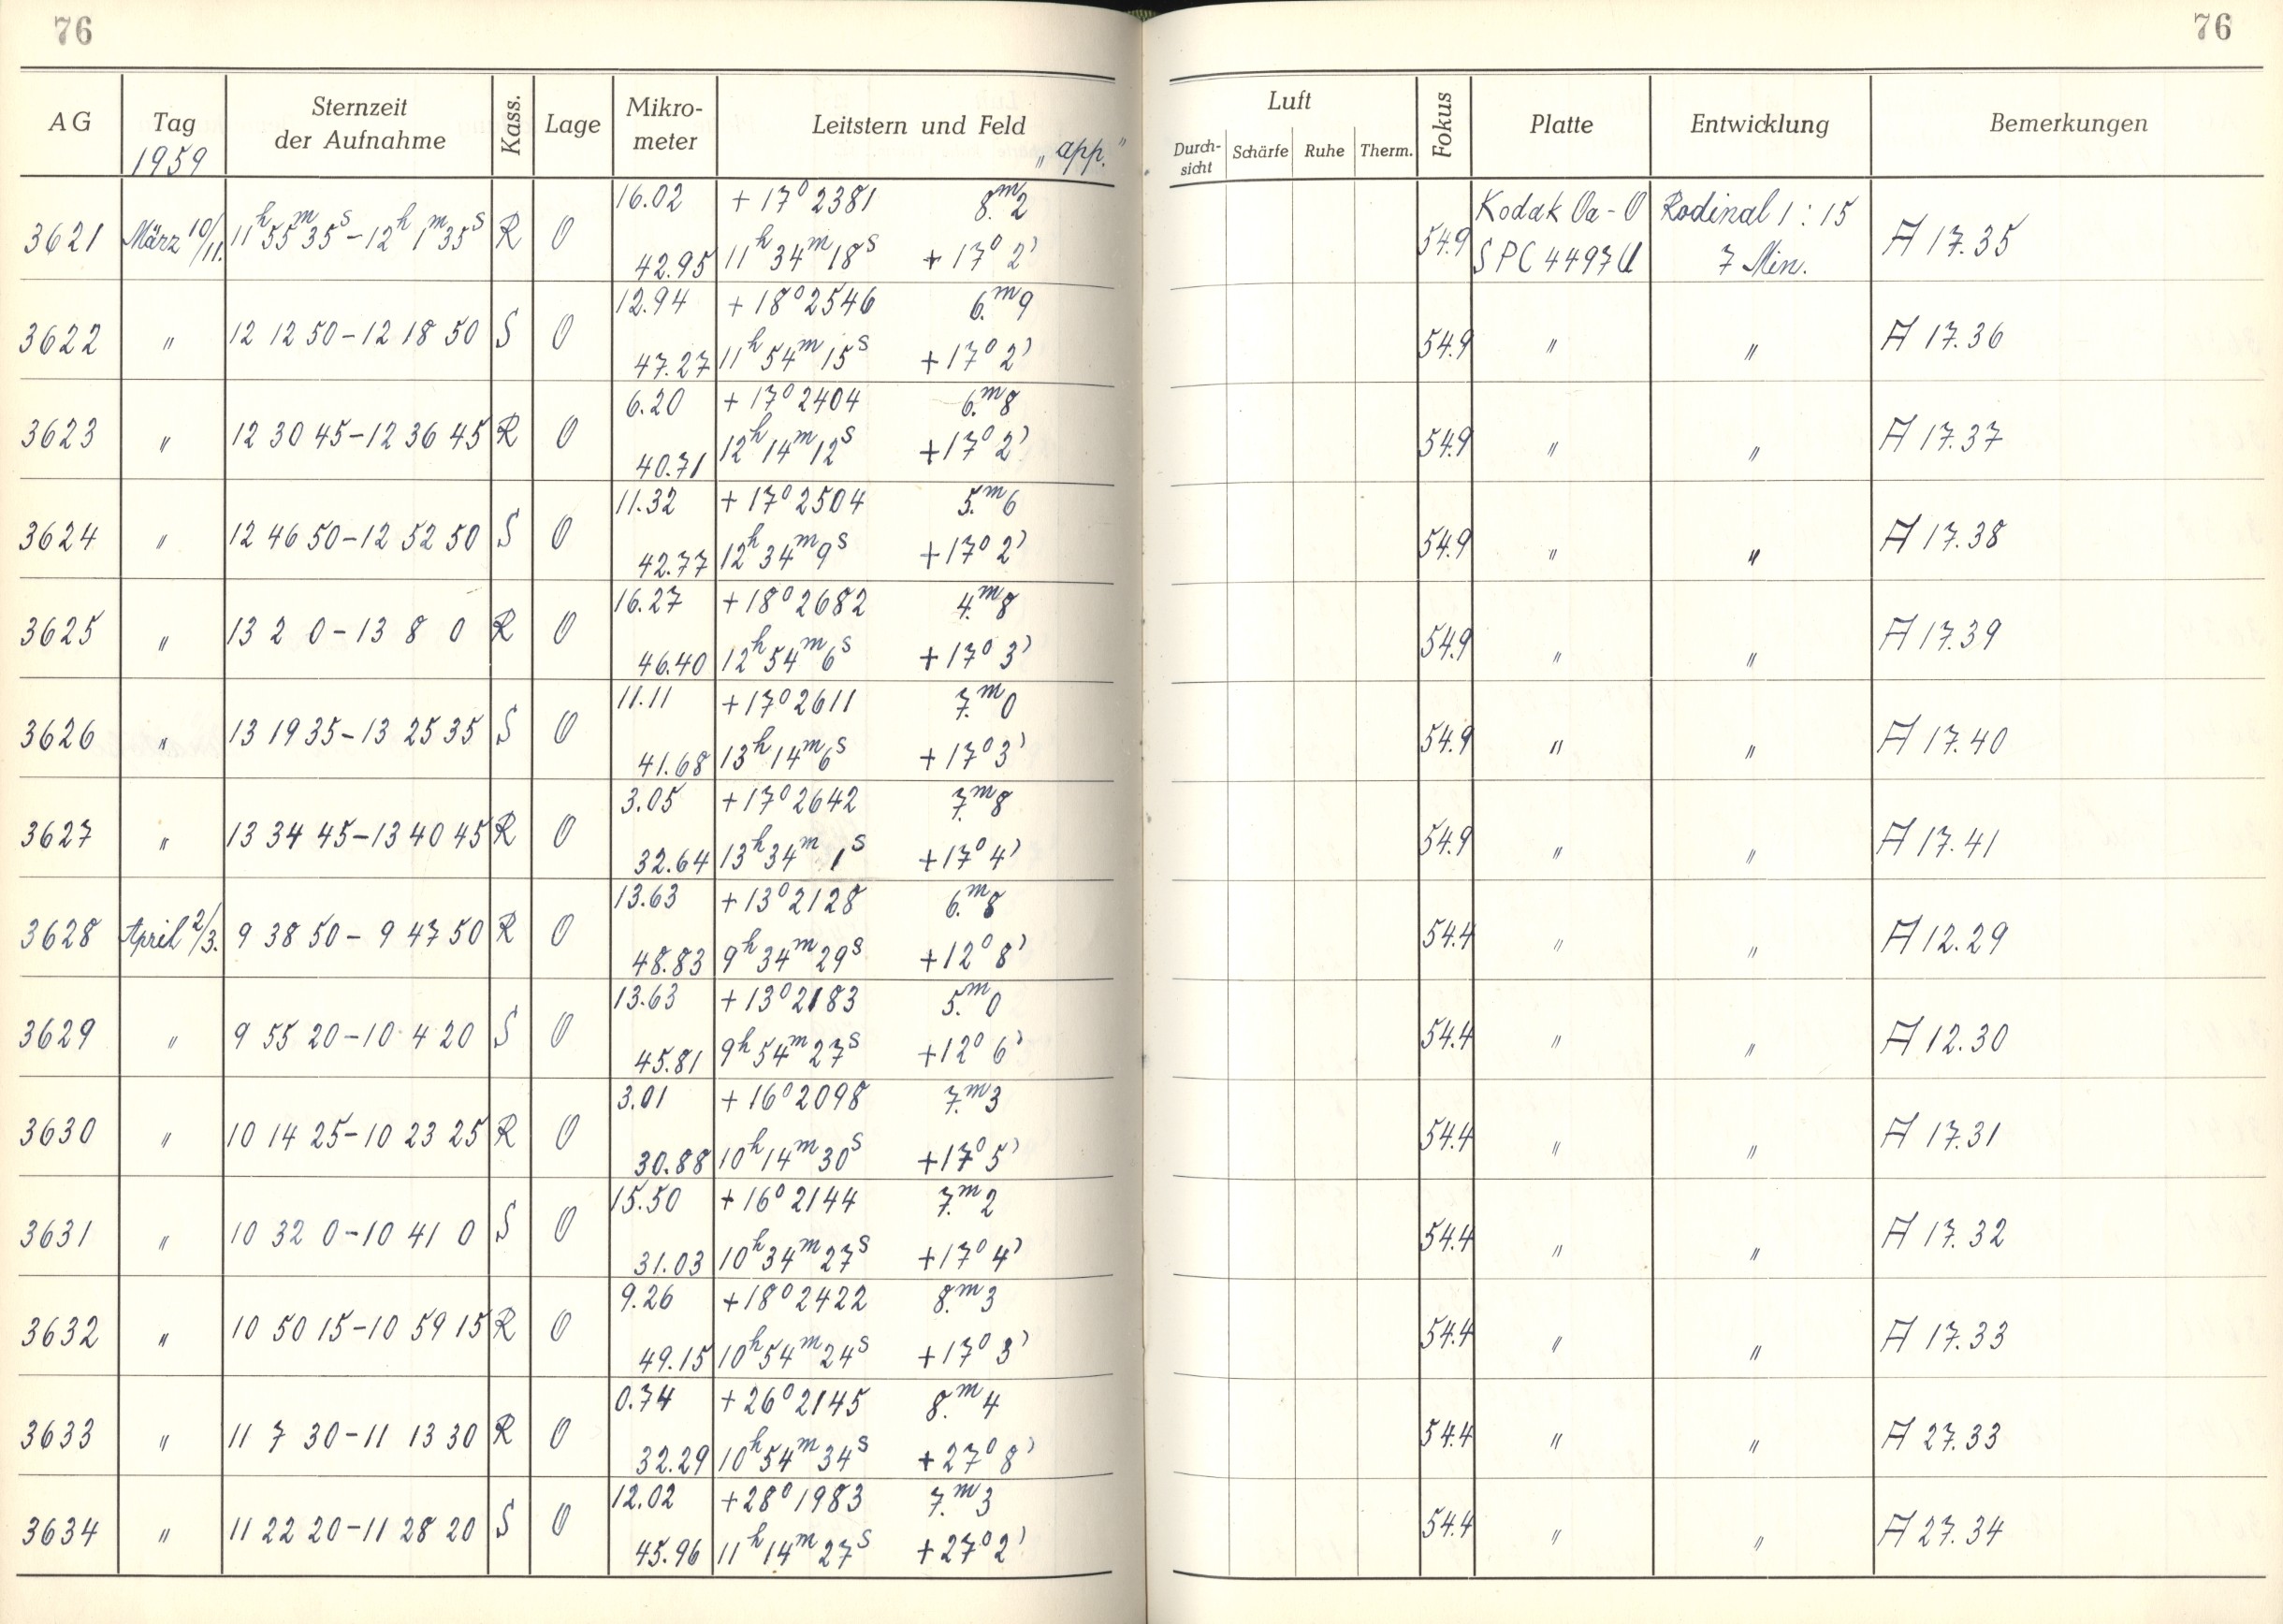 76 76
AG Tag Sternzeit der Aufnahme Kass. Lage Mikro-meter Leitstern und Feld Luft Durch-sicht Schärfe Ruhe Therm. Fokus Platte Entwicklung Bemerkungen
1959 „app."
16.02 + 17° 2381 8.ᵐ2 Kodak 0a-O Rodinal 1:15
3621 März 10/11. 11ʰ55ᵐ35ˢ-12ʰ1ᵐ35ˢ R O 54.9 A 17.35
42.95 11ʰ34ᵐ18ˢ +17° 2' SPC 4497U 7 Min.
12.94 +18° 2546 6.ᵐ9
3622 " 12 12 50-12 18 50 S O 54.9 " " A 17.36
47.27 11ʰ54ᵐ15ˢ +17° 2'
6.20 +17° 2404 6.ᵐ8
3623 " 12 30 45-12 36 45 R O 54.9 " " A 17.37
40.71 12ʰ14ᵐ12ˢ +17° 2'
11.32 +17° 2504 5.ᵐ6
3624 " 12 46 50-12 52 50 S O 54.9 " " A 17.38
42.77 12ʰ34ᵐ9ˢ +17° 2'
16.27 +18° 2682 4.ᵐ8
3625 " 13 2 0-13 8 0 R O 54.9 " " A 17.39
46.40 12ʰ54ᵐ6ˢ +17° 3'
11.11 +17° 2611 7.ᵐ0
3626 " 13 19 35-13 25 35 S O 54.9 " " A 17.40
41.68 13ʰ14ᵐ6ˢ +17° 3'
3.05 +17° 2642 7.ᵐ8
3627 " 13 34 45-13 40 45 R O 54.9 " " A 17.41
32.64 13ʰ34ᵐ1ˢ +17° 4'
13.63 +13° 2128 6.ᵐ8
3628 April 2/3. 9 38 50- 9 47 50 R O 54.4 " " A 12.29
48.83 9ʰ34ᵐ29ˢ +12° 8'
13.63 +13° 2183 5.ᵐ0
3629 " 9 55 20-10 4 20 S O 54.4 " " A 12.30
45.81 9ʰ54ᵐ27ˢ +12° 6'
3.01 +16° 2098 7.ᵐ3
3630 " 10 14 25-10 23 25 R O 54.4 " " A 17.31
30.88 10ʰ14ᵐ30ˢ +17° 5'
15.50 +16° 2144 7.ᵐ2
3631 " 10 32 0-10 41 0 S O 54.4 " " A 17.32
31.03 10ʰ34ᵐ27ˢ +17° 4'
9.26 +18° 2422 8.ᵐ3
3632 " 10 50 15-10 59 15 R O 54.4 " " A 17.33
49.15 10ʰ54ᵐ24ˢ +17° 3'
0.74 +26° 2145 8.ᵐ4
3633 " 11 7 30-11 13 30 R O 54.4 " " A 27.33
32.29 10ʰ54ᵐ34ˢ +27° 8'
12.02 +28° 1983 7.ᵐ3
3634 " 11 22 20-11 28 20 S O 54.4 " " A 27.34
45.96 11ʰ14ᵐ27ˢ +27° 2'